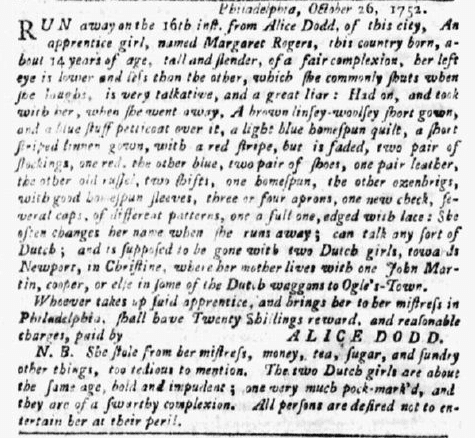 Philadelphia, October 26, 1752.
RUN away on the 16th inst. from Alice Dodd, of this city, An
apprentice girl, named Margaret Rogers, this country born, a-
bout 14 years of age, tall and slender, of a fair complexion, her left
eye is lower and less than the other, which she commonly shuts when
she laughs, is very talkative, and a great liar: Had on, and took
with her, when she went away, A brown linsey-woolsey short gown,
and a blue stuff petticoat over it, a light blue homespun quilt, a short
striped linnen gown, with a red stripe, but is faded, two pair of
stockings, one red, the other blue, two pair of shoes, one pair leather,
the other old russel, two shifts, one homespun, the other ozenbrigs,
with good homespun sleeves, three or four aprons, one new check, se-
veral caps, of different patterns, one a full one, edged with lace: She
often changes her name when she runs away; can talk any sort of
Dutch; and is supposed to be gone with two Dutch girls, towards
Newport, in Christine, where her mother lives with one John Mar-
tin, cooper, or else in some of the Dutch waggons to Ogle's-Town.
Whoever takes up said apprentice, and brings her to her mistress in
Philadelphia, shall have Twenty Shillings reward, and reasonable
charges, paid by ALICE DODD.
N. B. She stole from her mistress, money, tea, sugar, and sundry
other things, too tedious to mention. The two Dutch girls are about
the same age, bold and impudent; one very much pock-mark'd, and
they are of a swarthy complexion. All persons are desired not to en-
tertain her at their peril.